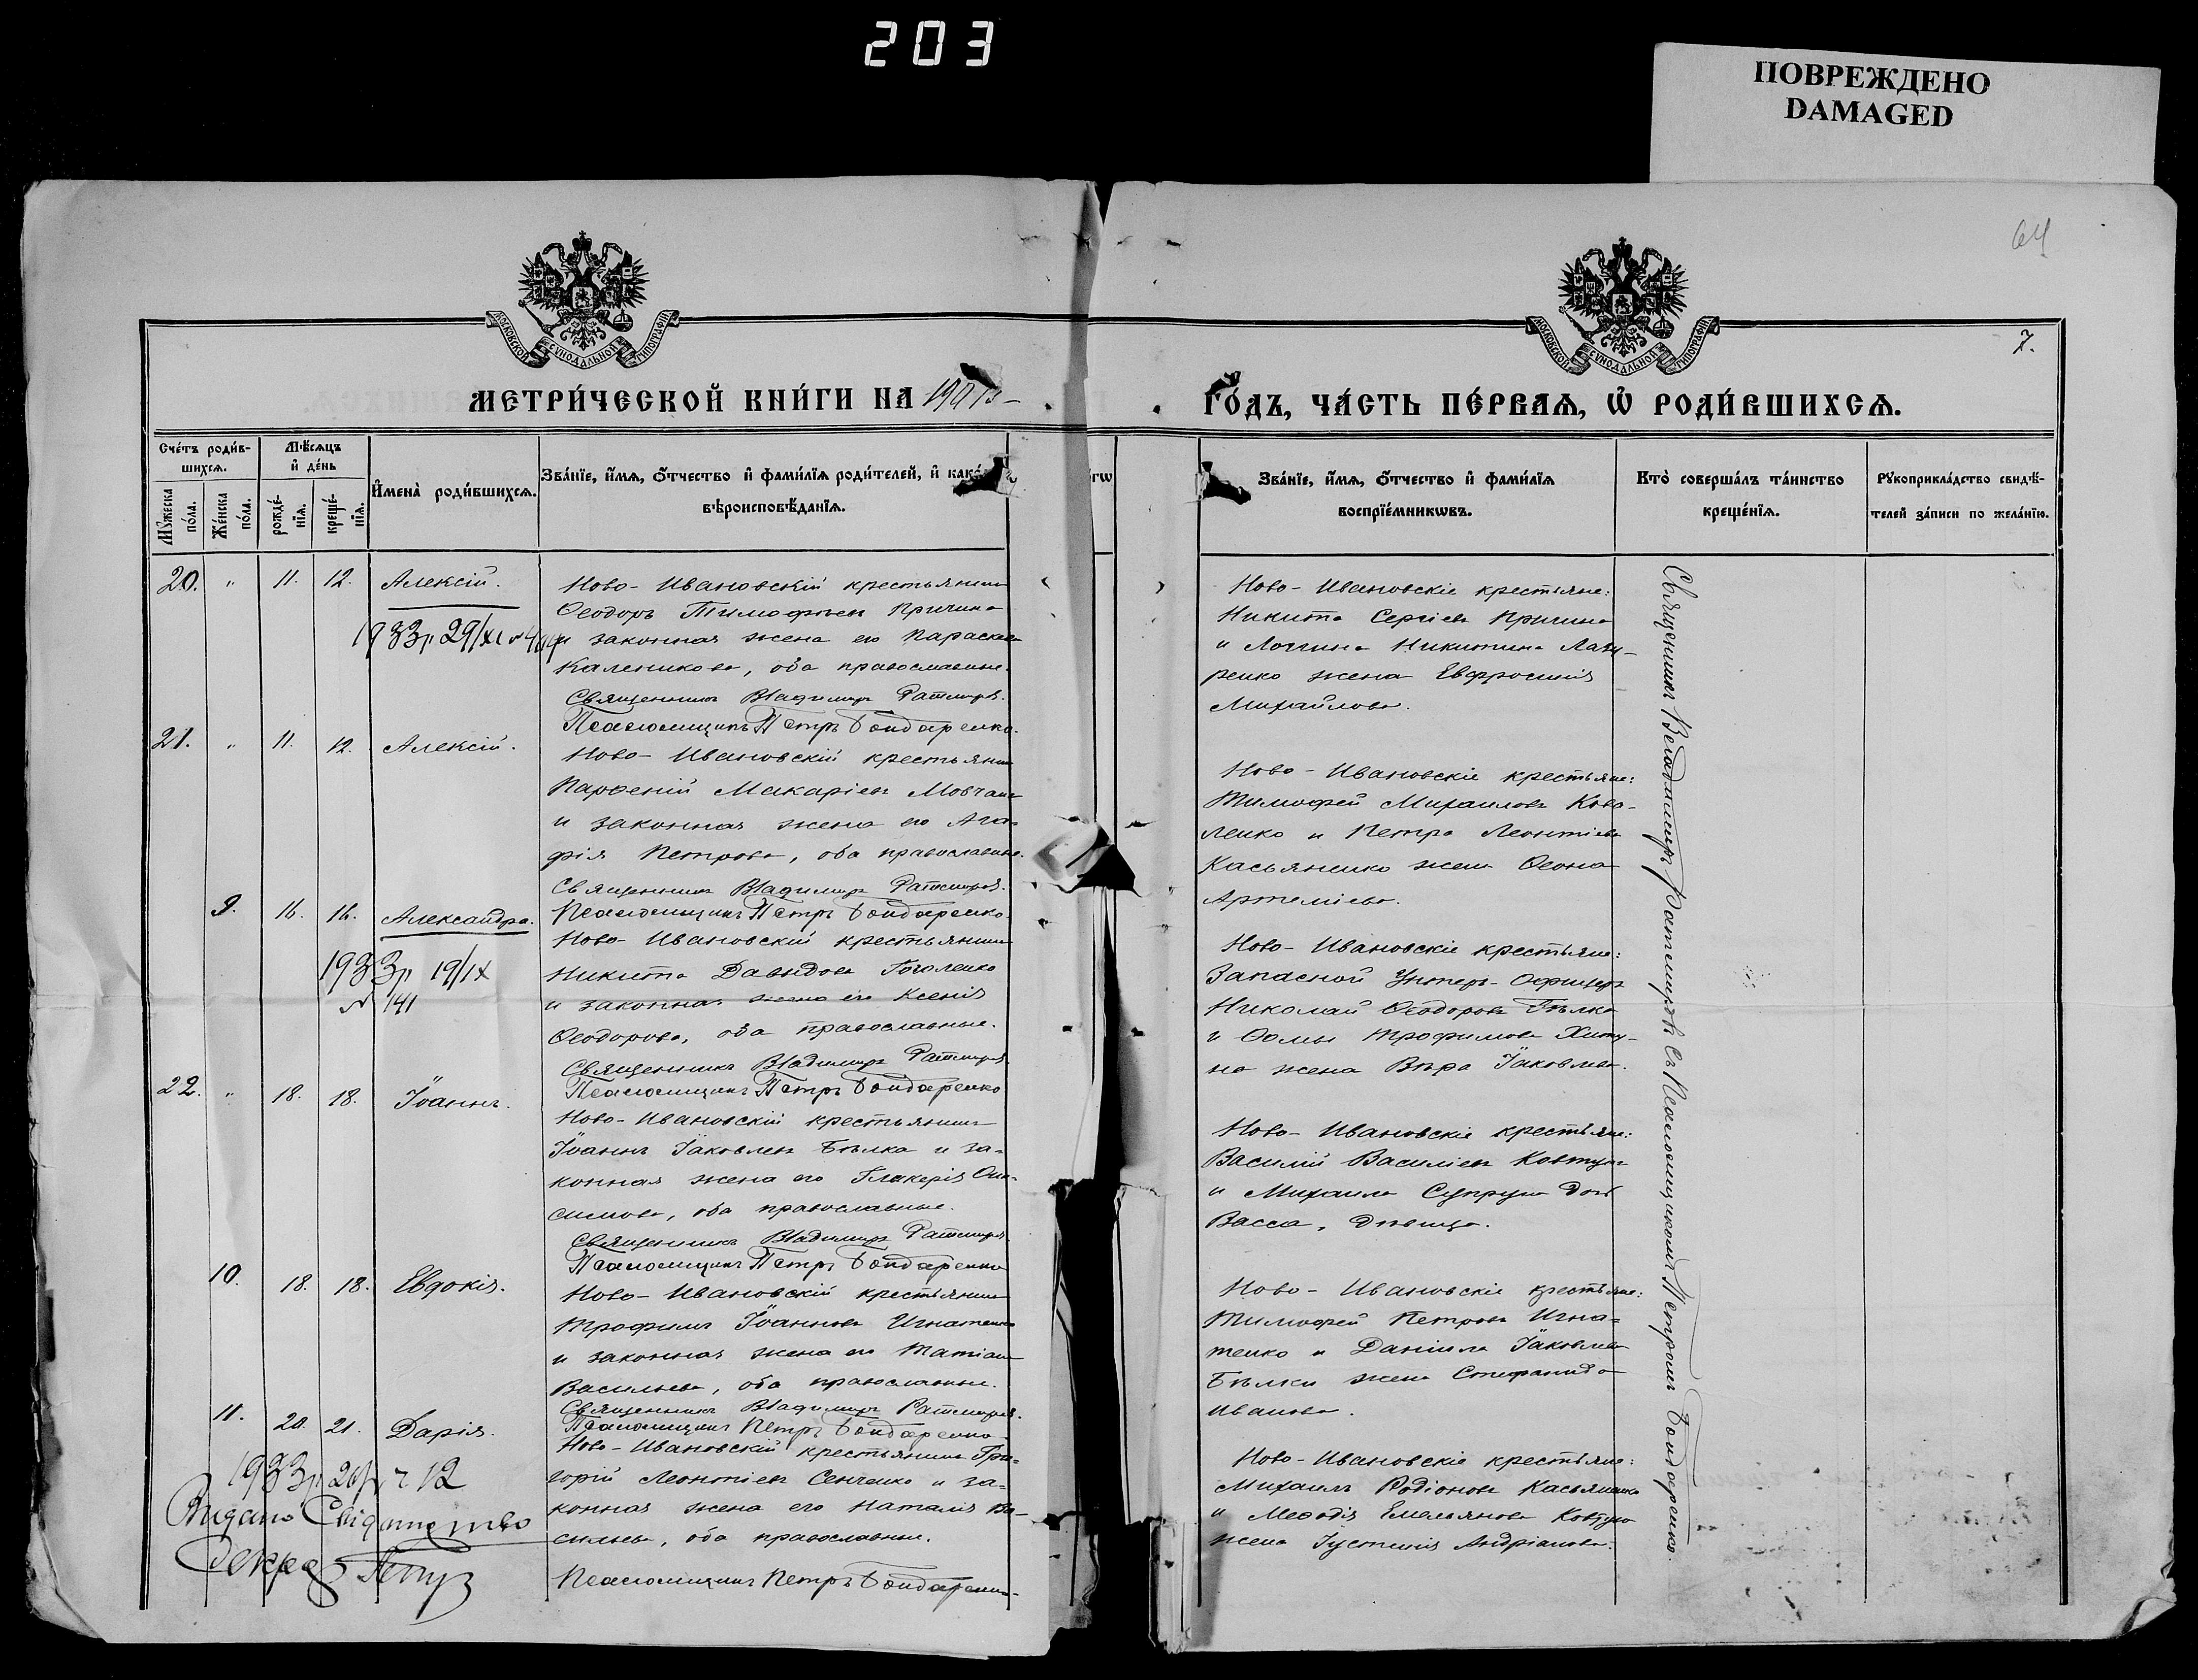 203
ПОВРЕЖДЕНО
DAMAGED
64
7.
МОСКОВСКОЙ СѴНОДАЛЬНОЙ ТИПОГРАФІИ
МОСКОВСКОЙ СѴНОДАЛЬНОЙ ТИПОГРАФІИ
МЕТРИ́ЧЕСКОЙ КНИ́ГИ НА
ГО́ДЪ, ЧА́СТЬ ПЕ́РВАѦ, Ѡ҆ РОДИ́ВШИХСѦ.
Сче́тъ роди́в-
шихсѧ.
Мѣ́сѧцъ
и҆ де́нь
Мꙋ́жеска
по́ла.
Же́нска
по́ла.
рожде́-
нїѧ.
креще́-
нїѧ.
И҆мена̀ роди́вшихсѧ.
Зва́нїе, и҆́мѧ, ѻ҆́тчество и҆ фами́лїѧ роди́телей, и҆
вѣроисповѣ́данїѧ.
Зва́нїе, и҆́мѧ, ѻ҆́тчество и҆ фами́лїѧ
воспрїе́мникѡвъ.
Кто̀ соверша́лъ та́инство
креще́нїѧ.
Рꙋкоприкла́дство свидѣ́-
телей за́писи по жела́нїю.
20. " 11. 12. Алексій.
Ново-Ивановскій крестьянинъ
Ѳеодоръ Тимофѣевъ Причина
и законная жена его Параскева
Каленикова, оба православные.
Священникъ Владимиръ Ратмировъ.
Псаломщикъ Петръ Бондаренко.
1933р 29/XI
Ново-Ивановскіе крестьяне:
Никита Сергіевъ Причина
и Логгина Никитина Лазу-
ренко жена Евфросинія
Михайлова.
21. " 11. 12. Алексій.
Ново-Ивановскій крестьянинъ
Парѳеній Макаріевъ Мовчанъ
и законная жена его Ага-
фія Петрова, оба православные.
Священникъ Владимиръ Ратмировъ.
Псаломщикъ Петръ Бондаренко.
Ново-Ивановскіе крестьяне:
Тимофей Михаиловъ Кова-
ленко и Петра Леонтіева
Касьяненко жена
Артеміева.
9. 16. 16. Александра.
Ново-Ивановскій крестьянинъ
Никита Давидовъ Гоголенко
и законная жена его Ксенія
Ѳеодорова, оба православные.
Священникъ Владимиръ Ратмировъ.
Псаломщикъ Петръ Бондаренко
1933р 19/IX
№ 141
Ново-Ивановскіе крестьяне:
Запасной Унтеръ-Офицеръ
Николай Ѳеодоровъ Бѣлка
и Ѳомы Трофимова
жена Вѣра Іаковлева.
22. " 18. 18. Іоаннъ.
Ново-Ивановскій крестьянинъ
Іоаннъ Іаковлевъ Бѣлка и за-
конная жена его Гликерія Они-
симова, оба православные.
Священникъ Владимиръ Ратмировъ.
Псаломщикъ Петръ Бондаренко
Ново-Ивановскіе крестьяне:
Василій Василіевъ Ковтунъ
и Михаила Супруна дочь
Васса, дѣвица.
10. 18. 18. Евдокія.
Ново-Ивановскій крестьянинъ
Трофимъ Іоанновъ Игнатенко
и законная жена его Татіана
Васильева, оба православные.
Священникъ Владимиръ Ратмировъ.
Псаломщикъ Петръ Бондаренко
Ново-Ивановскіе крестьяне:
Тимофей Петровъ Игна-
тенко и Даніила Іаковлева
Бѣлки жена Стефанида
Иванова.
11. 20. 21. Дарія.
Ново-Ивановскій крестьянинъ Гри-
горій Леонтіевъ Сенченко и за-
конная жена его Наталія Ва-
сильева, оба православные.
Псаломщикъ Петръ Бондаренко
1933р 12
Видано Свідоцтво
Секрет
Ново-Ивановскіе крестьяне:
Михаилъ Родіоновъ Касьяненко
и Меѳодія Емельянова Ковтуна
жена Іустинія Андріанова.
Священникъ Владимиръ Ратмировъ съ Псаломщикомъ Петромъ Бондаренко.